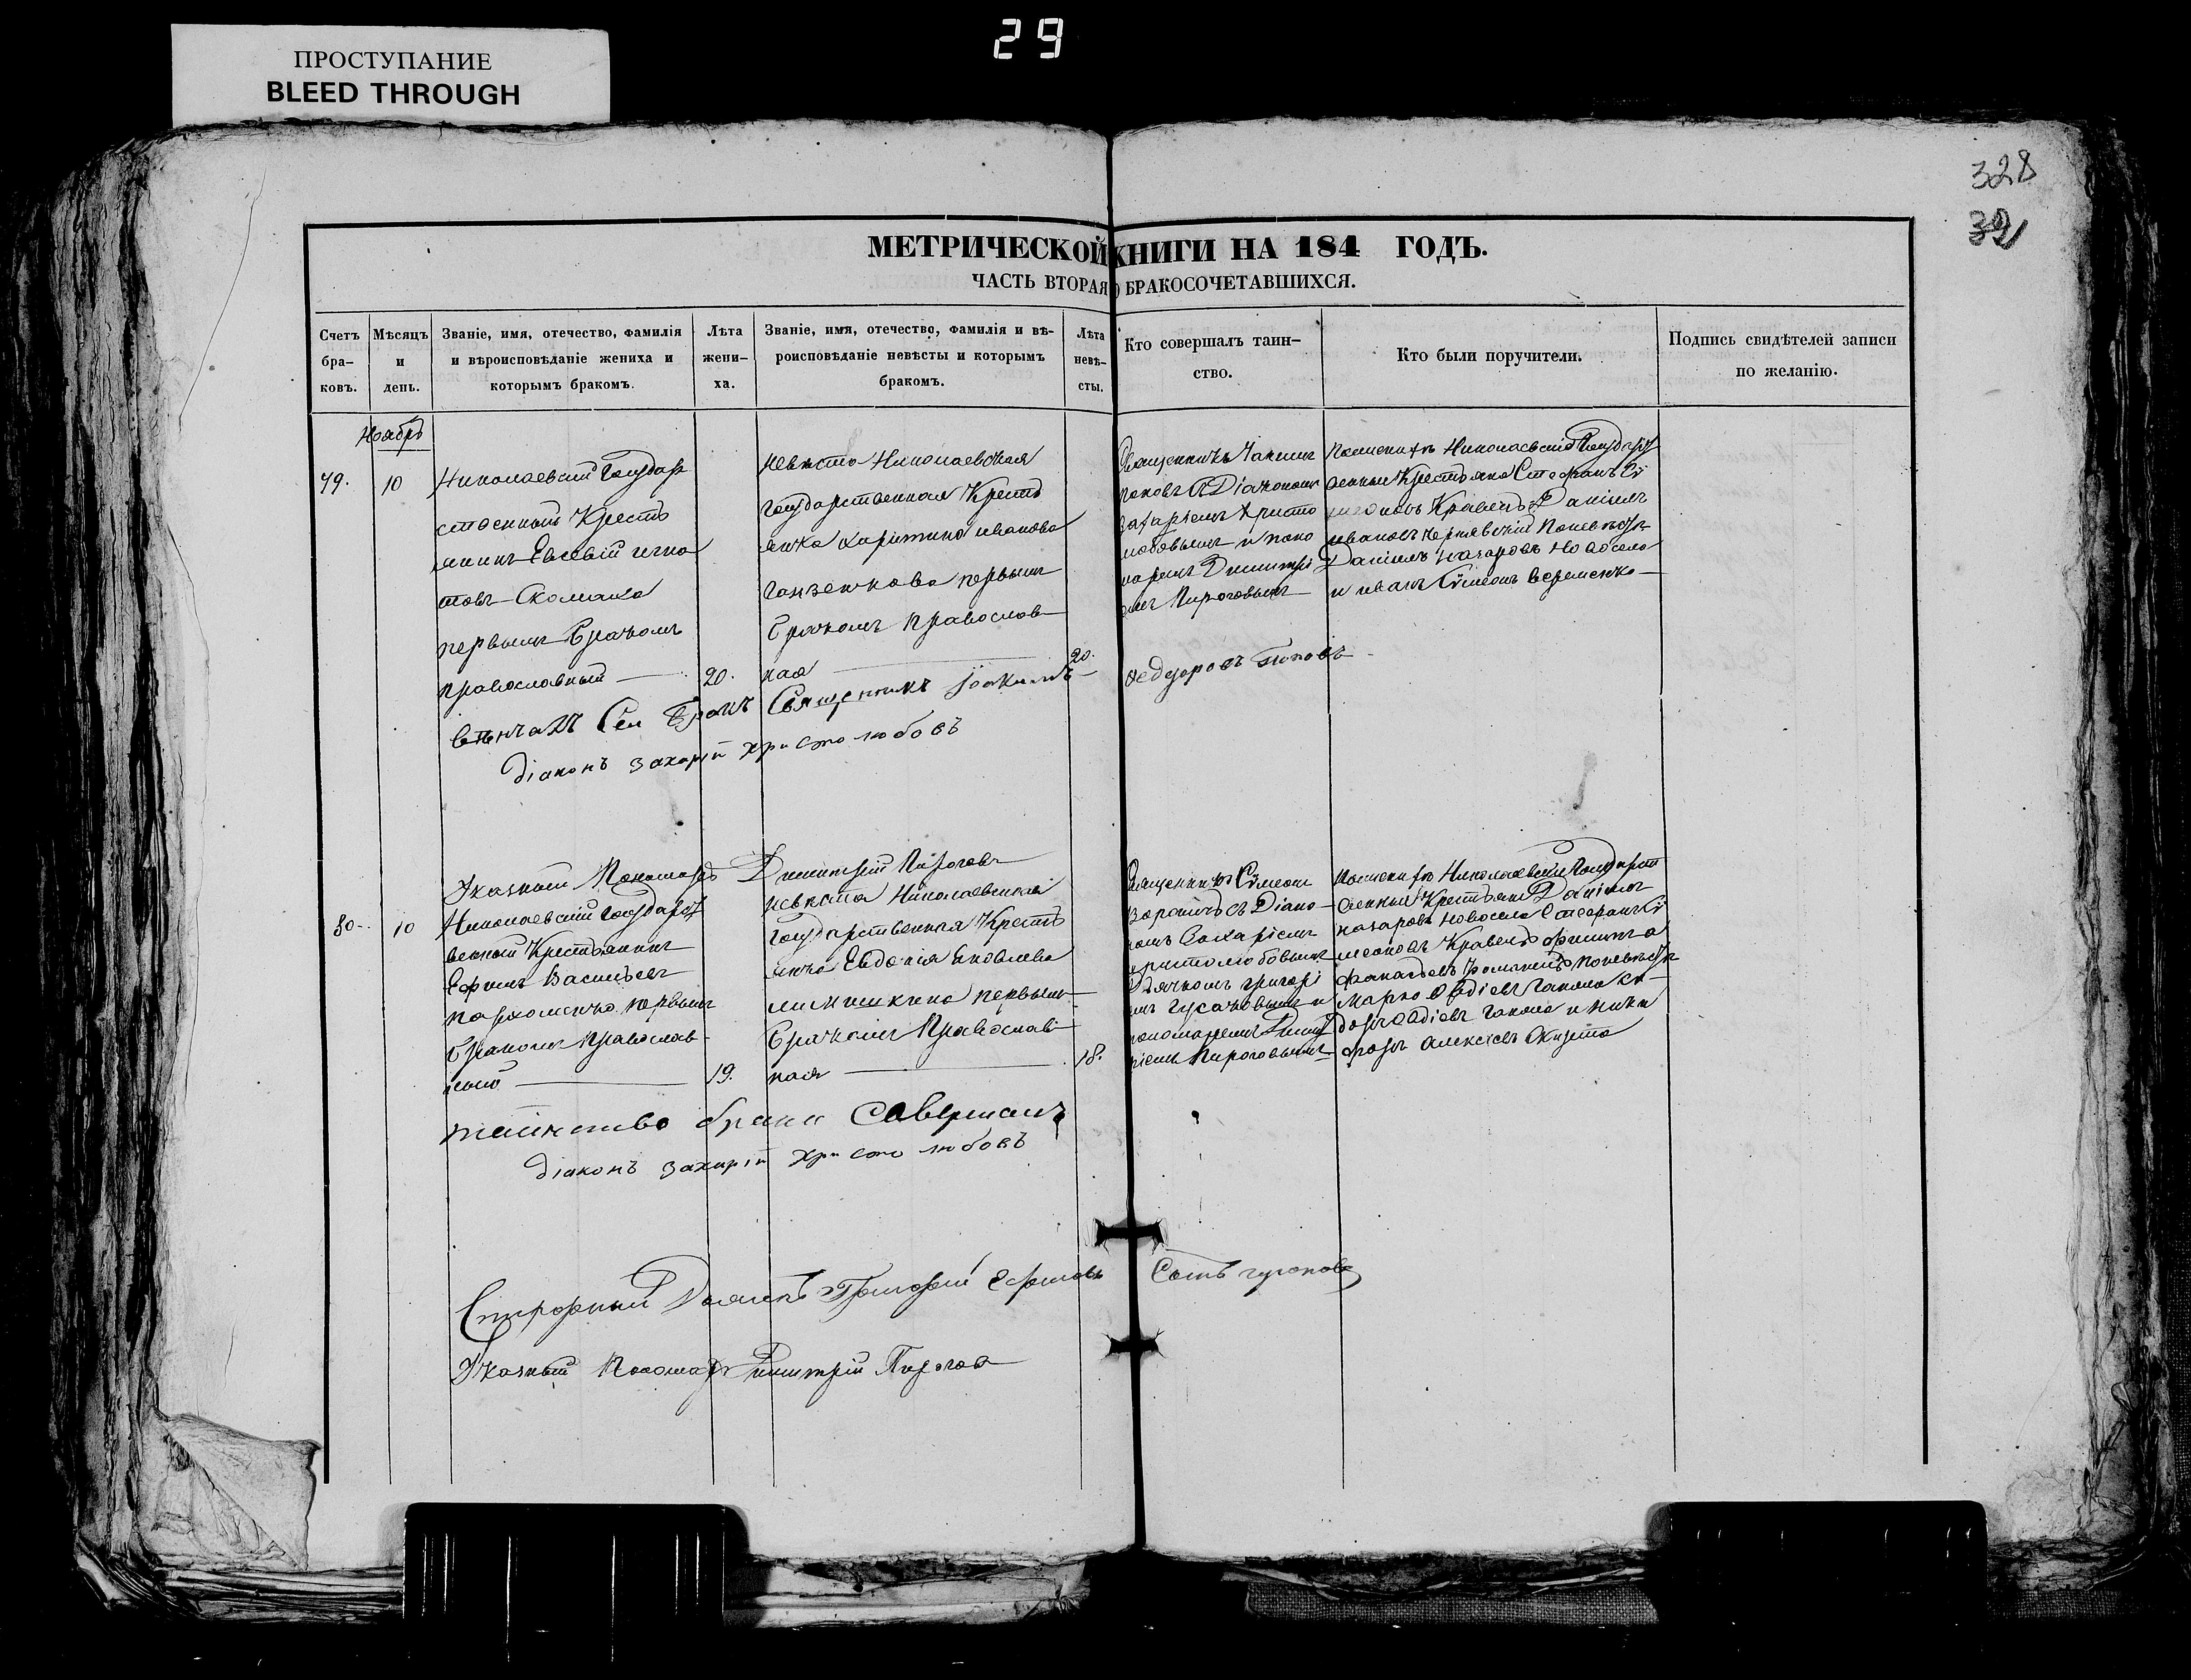 29
ПРОСТУПАНИЕ
BLEED THROUGH
328
МЕТРИЧЕСКОЙ КНИГИ НА 184 ГОДЪ.
ЧАСТЬ ВТОРАЯ О БРАКОСОЧЕТАВШИХСЯ.
Счетъ бра-ковъ.
Мѣсяцъ и день.
Званіе, имя, отечество, фамилія
и вѣроисповѣданіе жениха и
которымъ бракомъ.
Лѣта жени-ха.
Званіе, имя, отечество, фамилія и вѣ-
роисповѣданіе невѣсты и которымъ
бракомъ.
Лѣта невѣ-сты.
Кто совершалъ таин-
ство.
Кто были поручители.
Подпись свидѣтелей записи
по желанію.
Ноябрь
79.
10
Николаевскій Государ
ственный Кресть
янинъ Евсевій Игна
товъ
первымъ бракомъ
православный
20.
невѣста Николаевская
государственная Кресть
янка Харитина Иванова
Ганженкова первымъ
бракомъ православ
ная
20.
Священникъ
Поповъ Діакономъ
Захаріемъ Христо
любовымъ и поно
маремъ Димитрі
емъ Пироговымъ
по женихѣ Николаевскіе Государст
венные Крестьяне Стефанъ Сѵ
меоновъ Кравецъ Даніилъ
Ивановъ Чернявскій По невѣстѣ
Даніилъ Назаровъ Новосела
и Иванъ Сѵмеонъ Веременко
вѣнчалъ Сей Бракъ Священникъ Іоакимъ Федоровъ Поповъ
діаконъ Захарій Христолюбовъ
Указный Пономарь Димитрій Пироговъ
80
10
Николаевскій Государст
венный Крестьянинъ
Ефимъ Васильевъ
Пархоменко первымъ
бракомъ православ
ный
19.
невѣста Николаевская
Государственная Кресть
янка Евдокія Яковлева
первымъ
бракомъ Православ
ная
18.
Священникъ Сѵмеонъ
съ Діако
номъ Захаріемъ
Христолюбовымъ
Дьячкомъ Григорі
емъ Гусаковымъ и
пономаремъ Димит
ріемъ Пироговымъ
по женихѣ Николаевскіе Государст
венные Крестьяне Даніилъ
Назаровъ Новосела Стефанъ Сѵ
меоновъ Кравецъ Филиппъ А
фанасьевъ Романецъ по невѣстѣ
Марко Авдіевъ Гакало Си
доръ Авдіевъ Гакало и Ники
форъ Алексіевъ
таинство брака Совершалъ
діаконъ Захарій Христолюбовъ
Григорій Ефимовъ Сынъ Гусаковъ
Указный Пономарь Димитрій Пироговъ